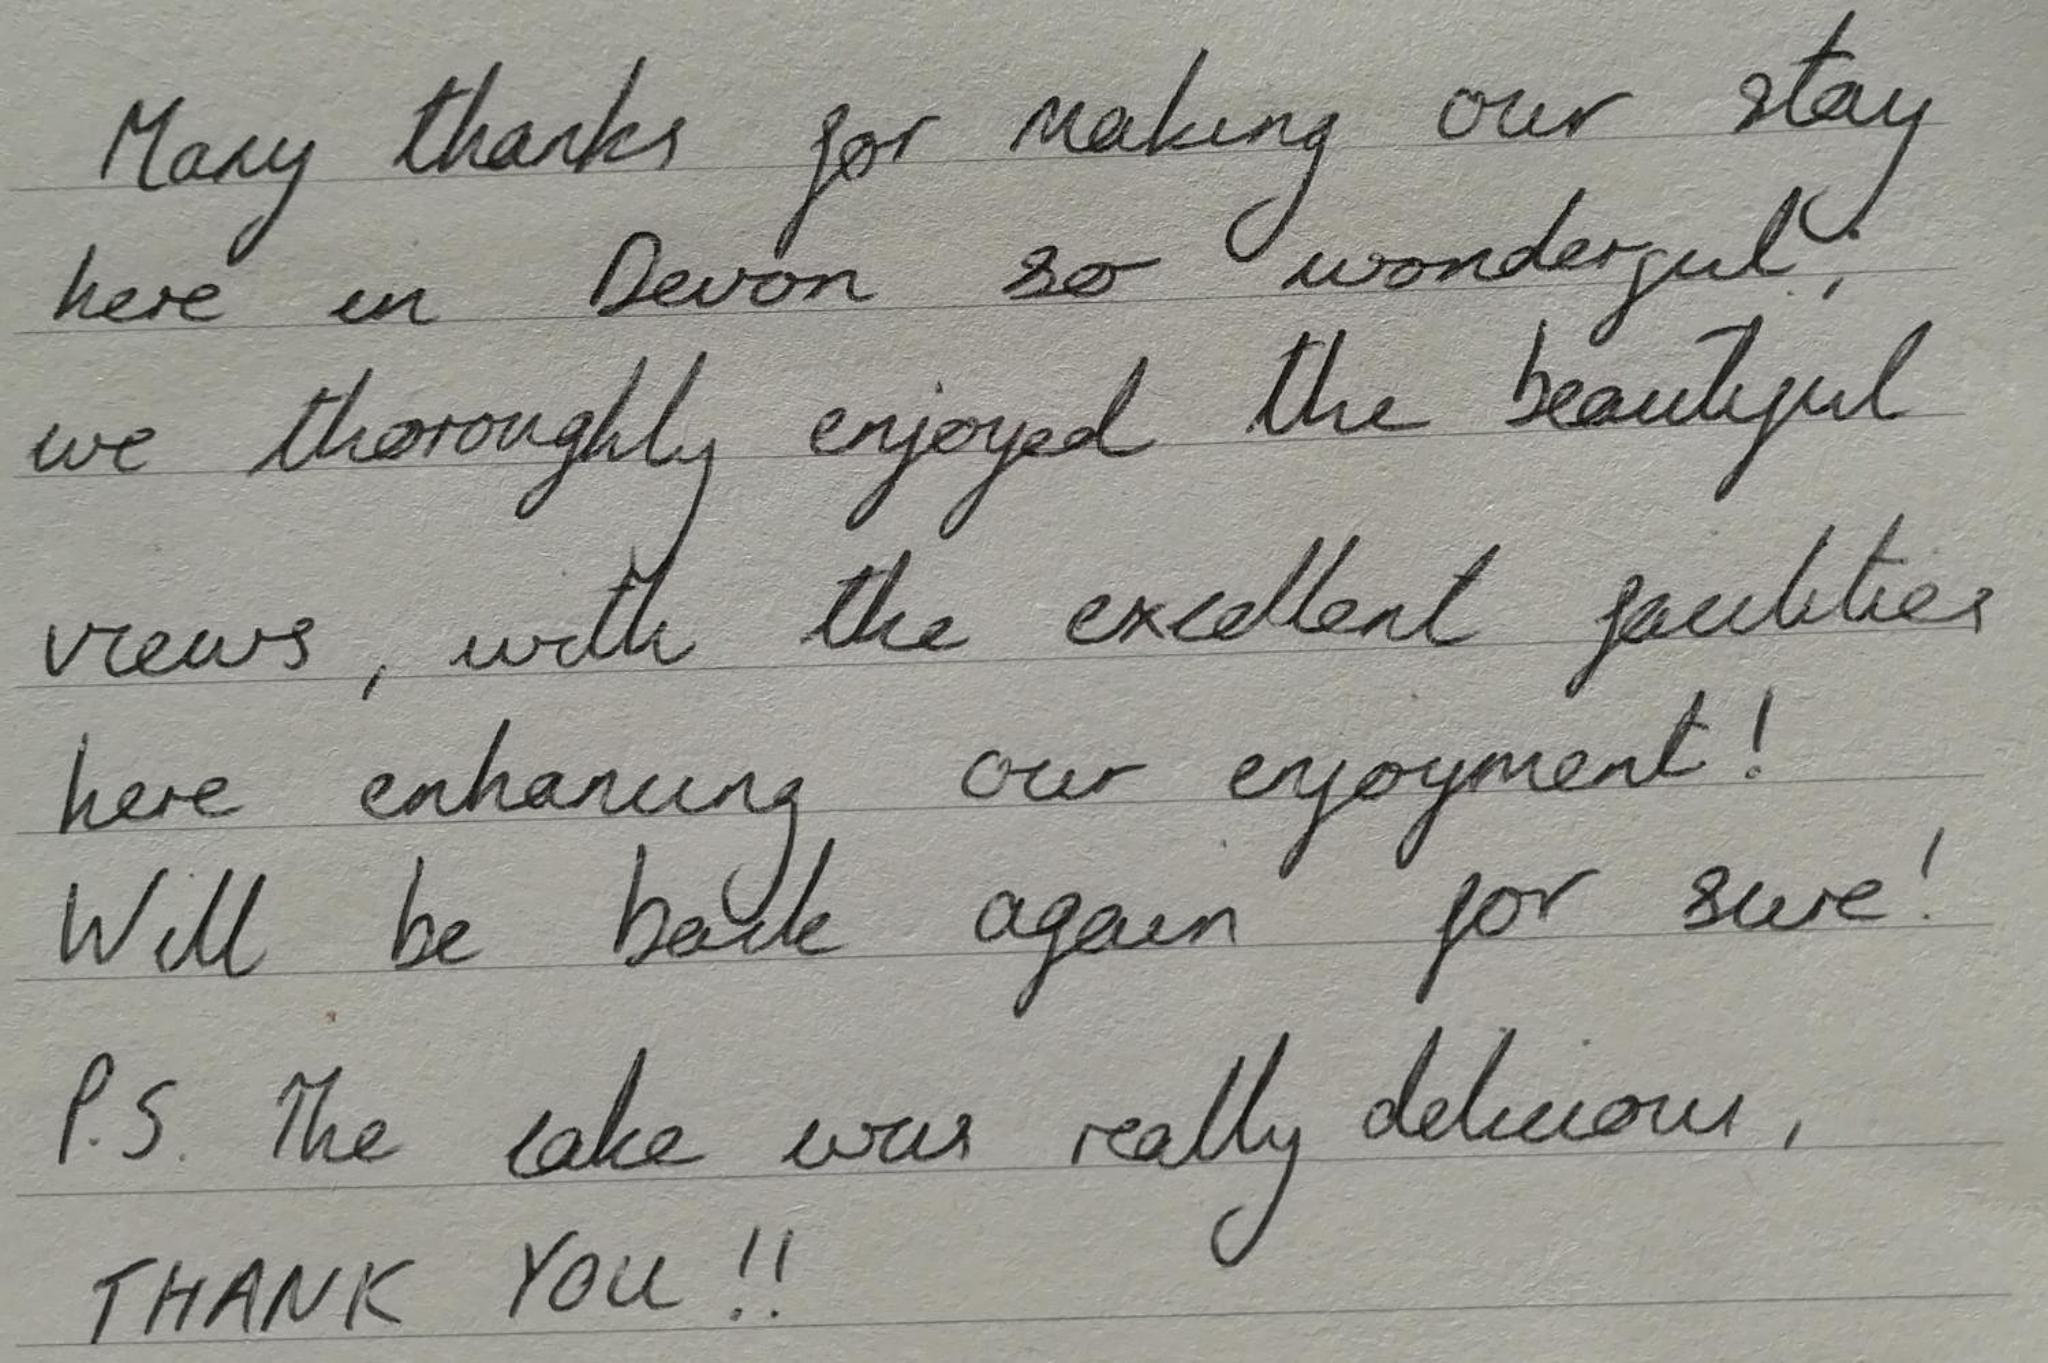 Many thanks for making our stay
here in Devon so wonderful;
we thoroughly enjoyed the beautiful
views, with the excellent facilities
here enhancing our enjoyment!
Will be back again for sure!
P.S. The cake was really delicious,
THANK YOU!!